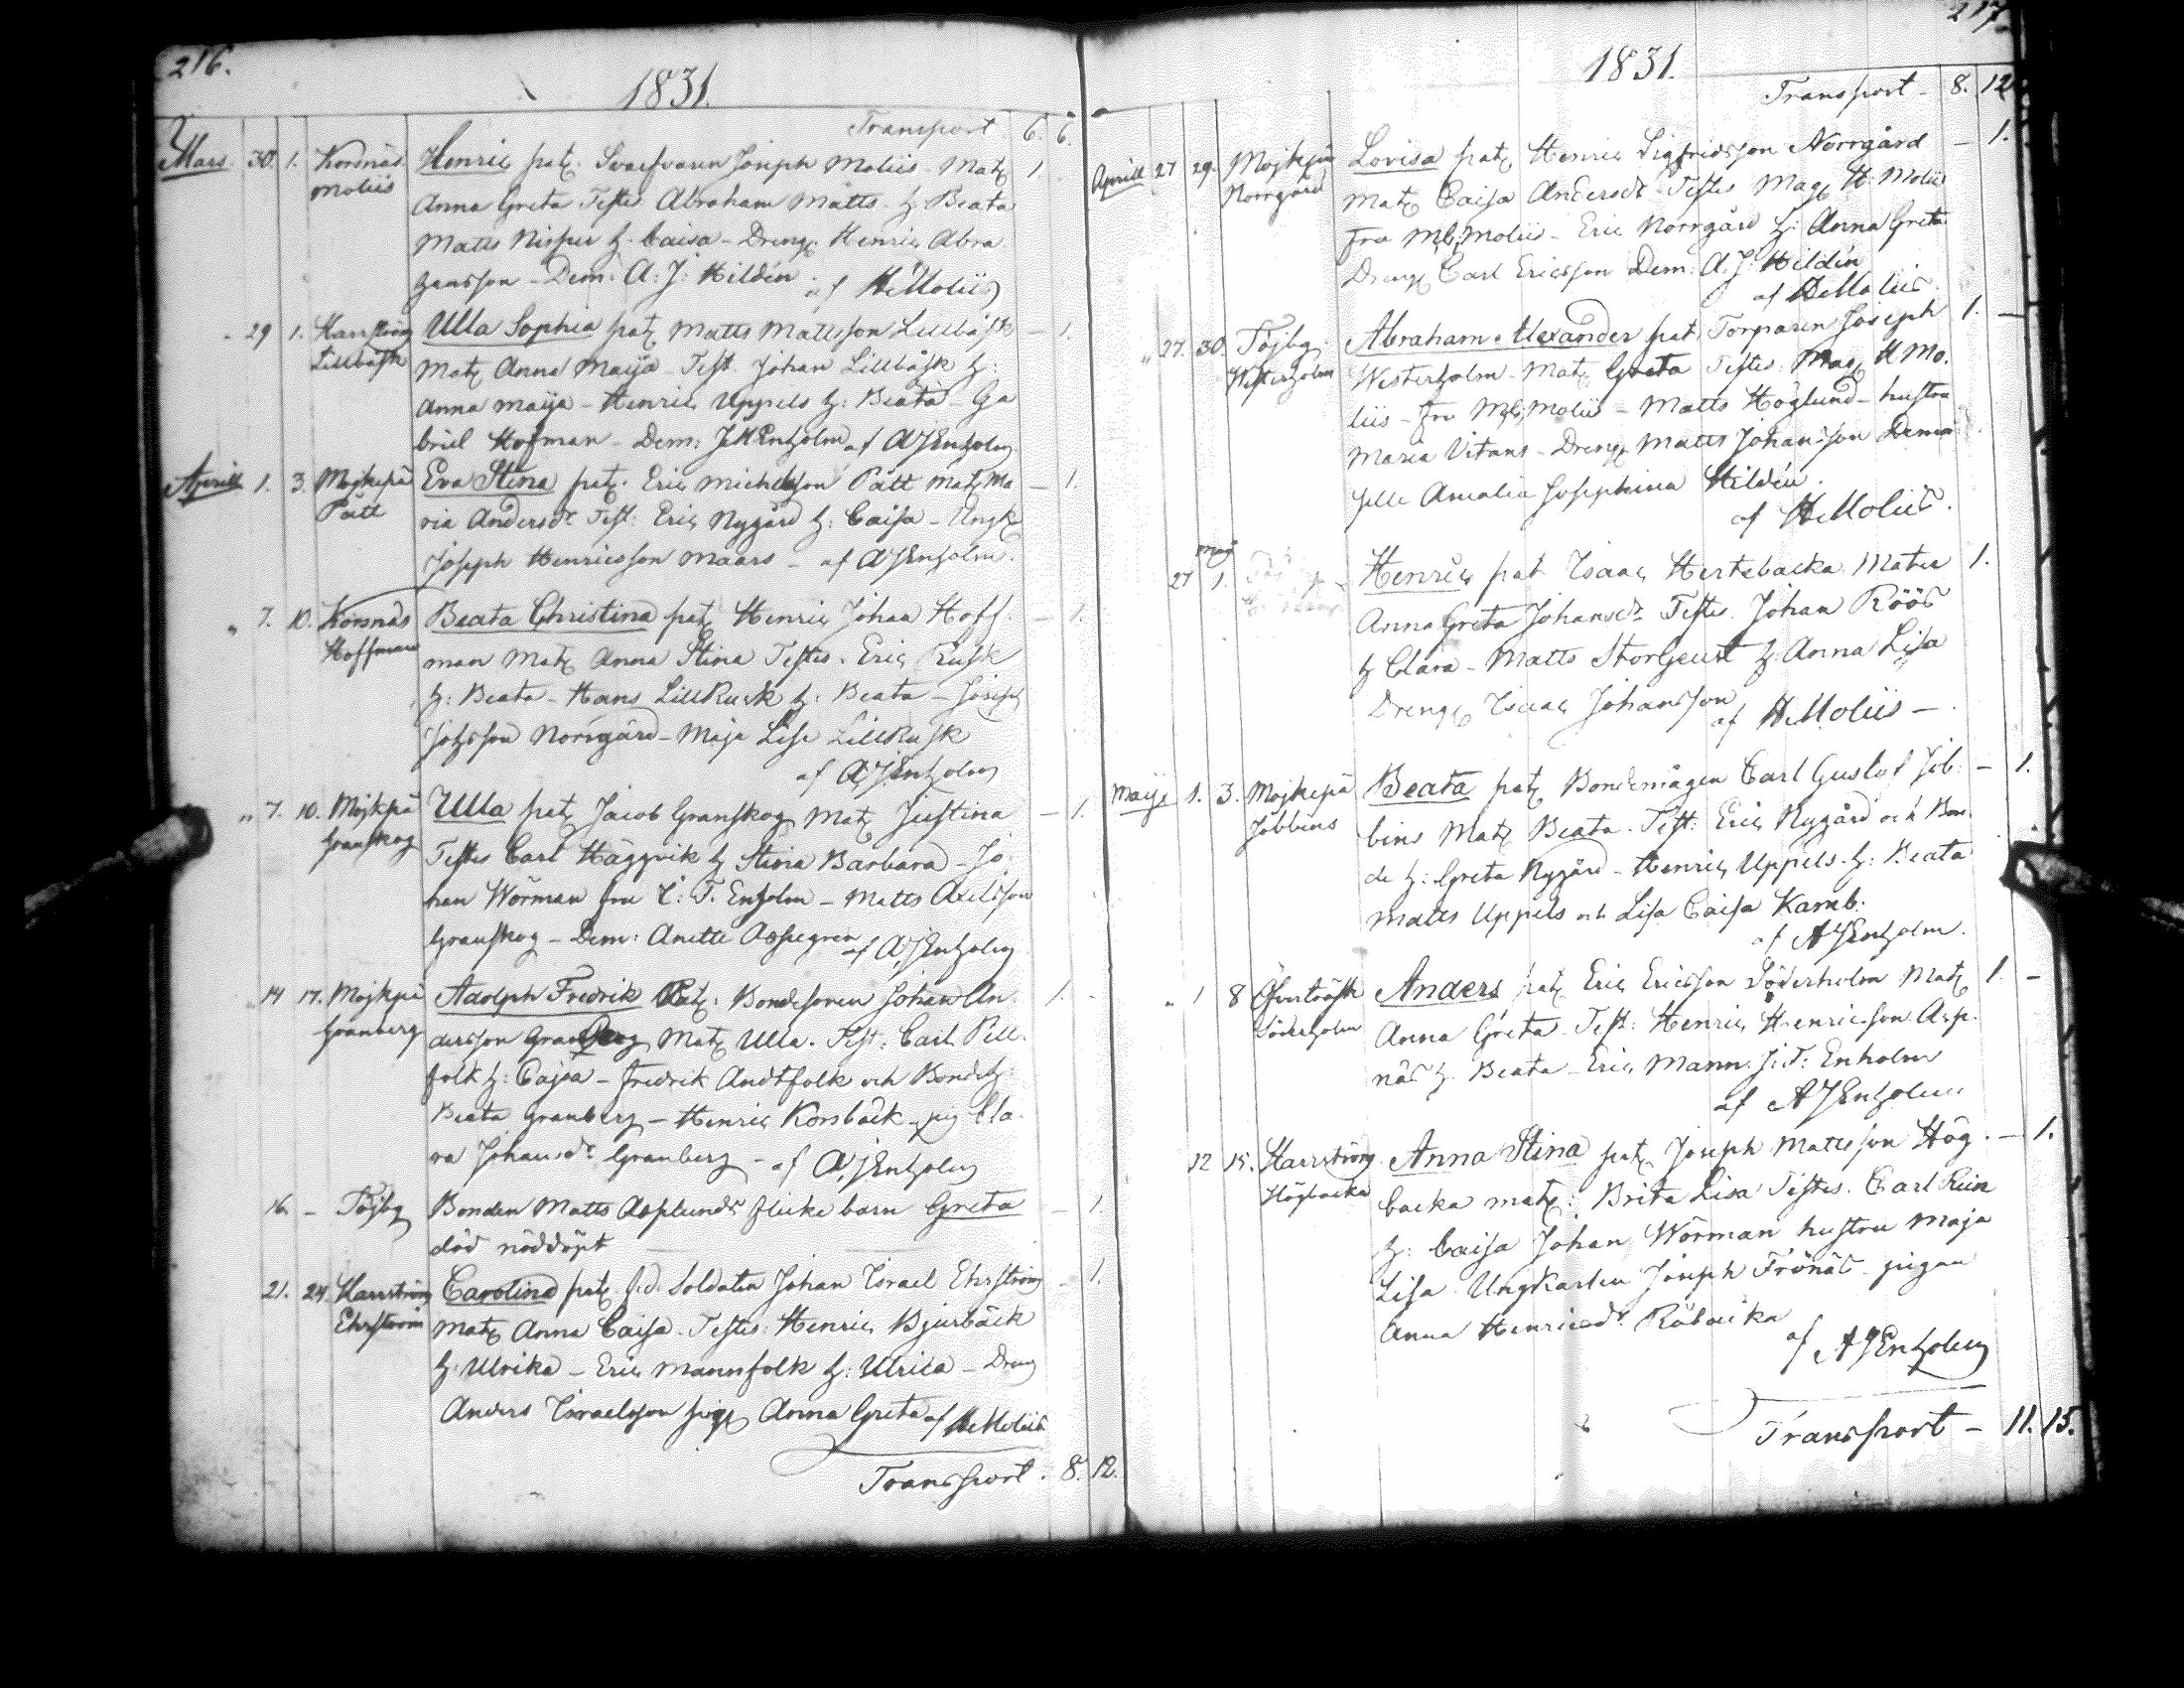 216.
1831.
Transport 6. 6.
Mars. 30. 1. Korsnäs Henric pat. Svarfvaren Joseph Moliis. Mat. 1.
Moliis Anna Greta Testes Abraham Matts h. Beata
Matts Nisper h. Caisa - Dreng. Henric Abra
hamsson - Dem: A: J: Hildén. af HMoliis
" 29 1. Harrström Ulla Sophia pat. Matts Mattsson Lillbåsk - 1.
Lillbåsk Mat. Anna Maija Test. Johan Lillbåsk h:
Anna Maija - Henric Uppels h: Beata - Ga
briel Hofman - Dem: JMEnholm af AJEnholm
Aprill 1. 3. Mojkepä Eva Stina pat. Eric Michelsson Pått Mat. Ma - 1.
Pått ria Andersdr. Test: Eric Nygård h: Caisa - Ungk
Joseph Henricsson Maars - af AJEnholm.
" 7. 10. Korsnäs Beata Christina pat. Henric Johan Hoff. - 1.
Hoffman man Mat. Anna Stina Testes. Eric Rusk
h: Beata - Hans LillRusk h: Beata - Joseph
Johsson Norrgård - Maja Lisa LillRusk
af AJEnholm
" 7. 10. Mojkpä Ulla pat. Jacob Granskog Mat. Justina - 1.
Granskog Testes Carl Häggvik h Stina Barbara - Jo
han Wörman fru C: T. Enholm - Matts Axelsson
Granskog - Dem: Anette Aspegren af AJEnholm
" 14 17. Mojkpä Adolph Fredrik Pat: Bondesonen Johan An 1. -
Granberg dersson Mat. Ulla. Test: Carl Pell
folk h: Cajsa - Fredrik Andtfolk och Bondeh:
Beata Granberg - Henric Korsbäck - pig Cla
ra Johansdr. Granberg - af AJEnholm
16. - Töjby Bonden Matts Asplunds flicke barn Greta - 1.
död nöddöpt
21. 24. Harrström Carolina pat. f.d. Soldaten Johan Israel Ehrström - 1.
Ehrström Mat. Anna Caisa. Testes: Henric Bjurbäck
h: Ulrika - Eric Mannfolk h: Ulrica - Dreng
Anders Israelsson pig. Anna Greta af HMoliis
Transport. 8. 12.
217.
1831.
Transport - 8. 12
Aprill 27 29. Mojkpä Lovisa pat. Henric Sigfridsson Norrgård - 1.
Norrgård Mat. Caisa Andersdr. Testes Mag. H: Moliis
fru Moliis - Eric Norrgård h: Anna Greta
Dreng Carl Ericsson Dem: A: J: Hildén
af HMoliis.
" 27. 30. Töjby. Abraham Alexander pat. Torparen Joseph 1. -
Westerholm Westerholm - Mat. Greta Testes: Mag. H Mo.
liis - fru Moliis - Matts Höglund - hustru
Maria Vitans - Dreng. Matts Johansson Demoi
selle Amalia Josephina Hildén.
af HMoliis.
Maij
27 1. Henric pat. Isaac Hertsbacka Mater 1.
Anna Greta Johansdr. Testes. Johan Röös
h Clara - Matts StorGeust h: Anna Lisa
Dreng Isaac Johansson
af HMoliis -
Maije 1. 3. Mojkepä Beata pat. Bondemågen Carl Gustaf Job: - 1.
Jobbins bins Mat. Beata. Test: Eric Nygård och Bon
de h: Greta Nygård - Henric Uppels. h: Beata
Matts Uppels och Lisa Caisa Kamb:
af AJEnholm.
" 1 8 Öfverträsk Anders pat. Eric Ericsson Söderholm Mat. 1. -
Söderholm Anna Greta. Test: Henric Henricsson Asp.
näs h. Beata - Eric Mann. J: T: Enholm
af AJEnholm
12 15. Harrström Anna Stina pat. Joseph Mattsson Hög. - 1.
Högbacka backa mat: Brita Lisa Testes. Carl Rein
h: Caisa Johan Wörman hustru Maja
Lisa Ungkarlen Joseph Frönäs pigan
Anna Henricsdr. Råbacka
af AJEnholm
Transport - 11. 15.